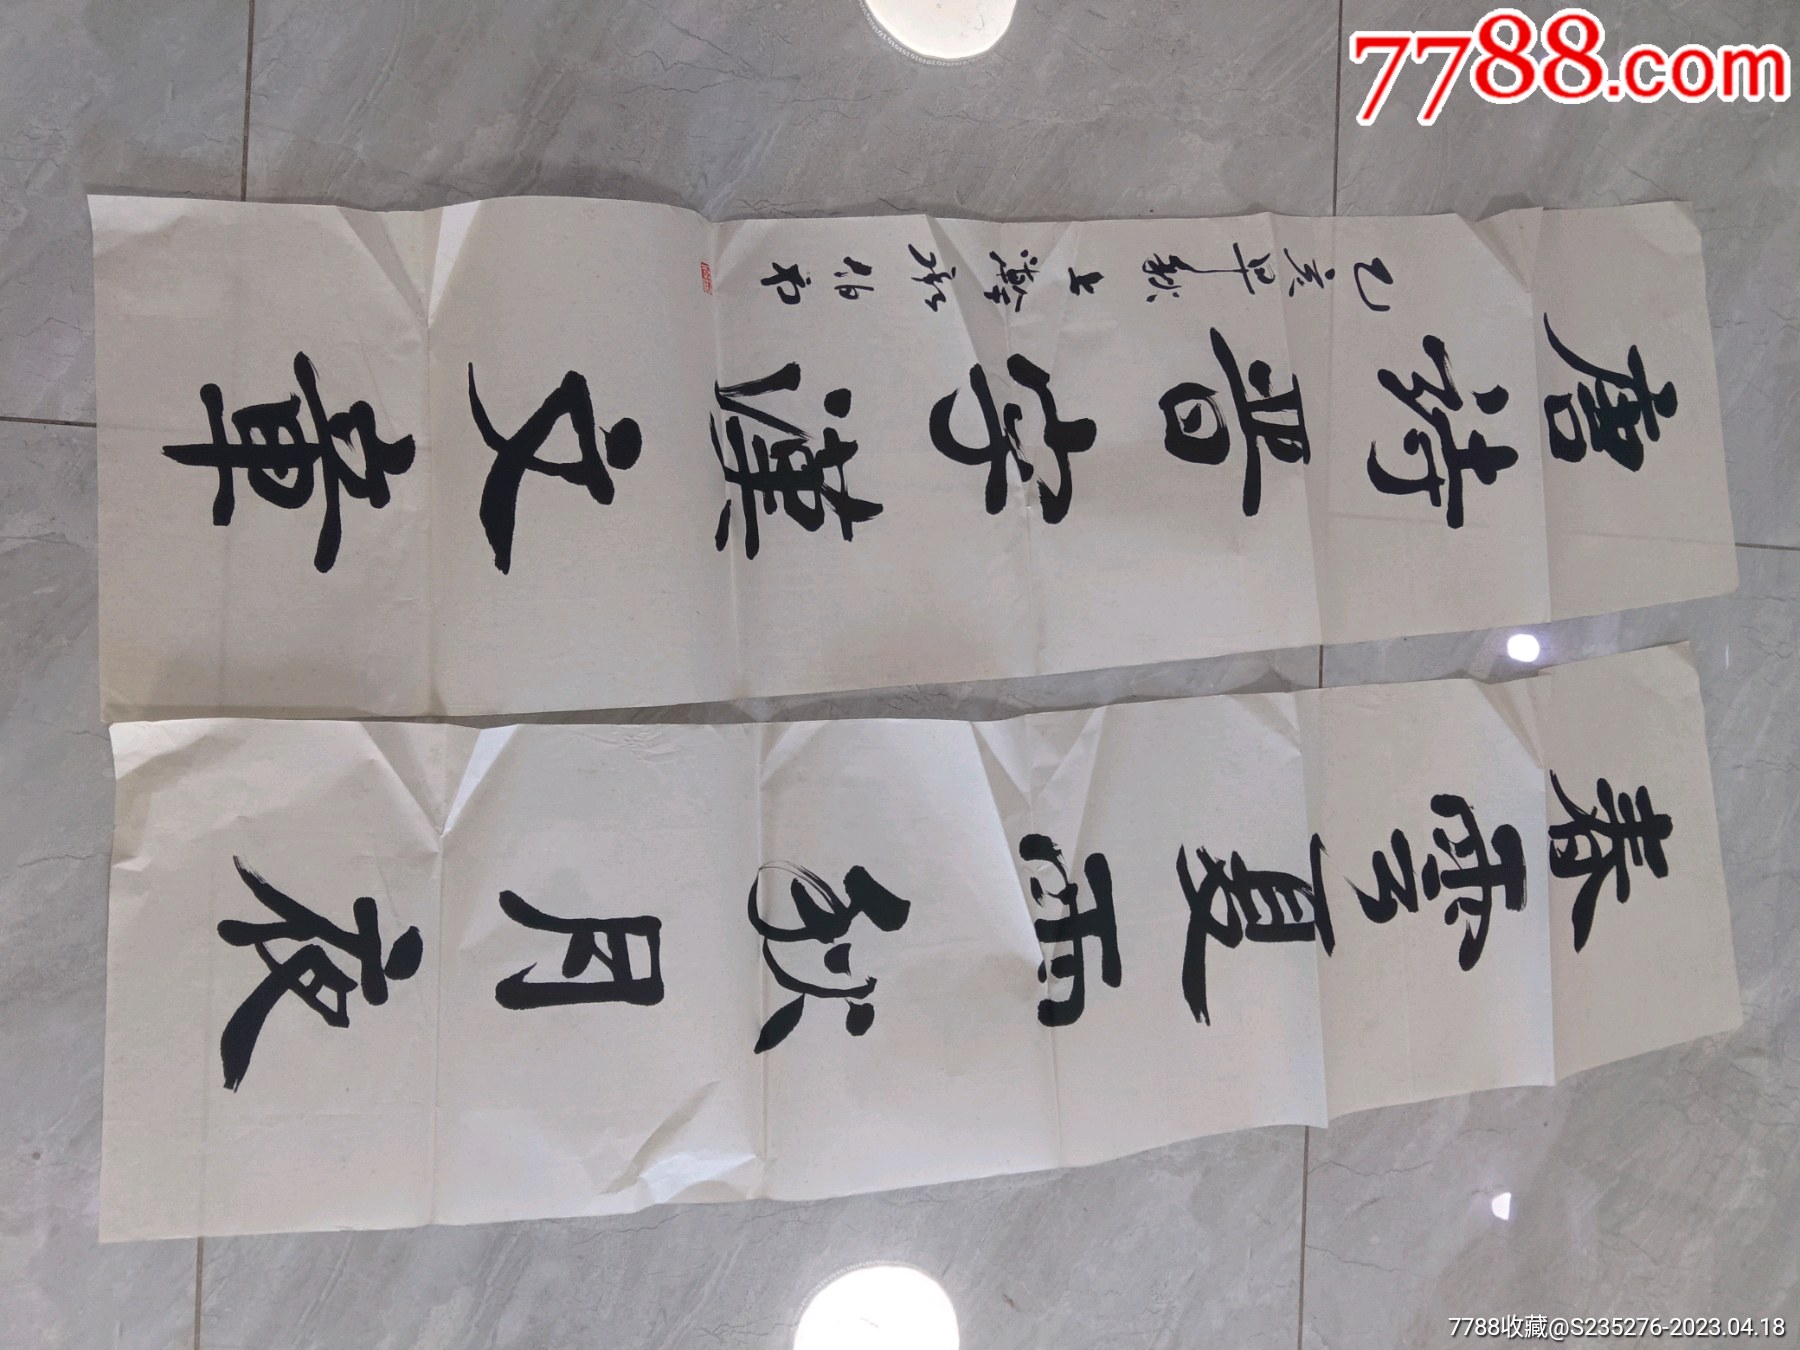 7788.com
春雪夏雨秋月夜
唐詩晉字漢文章
己亥 秋
7788收藏@S235276-2023.04.18